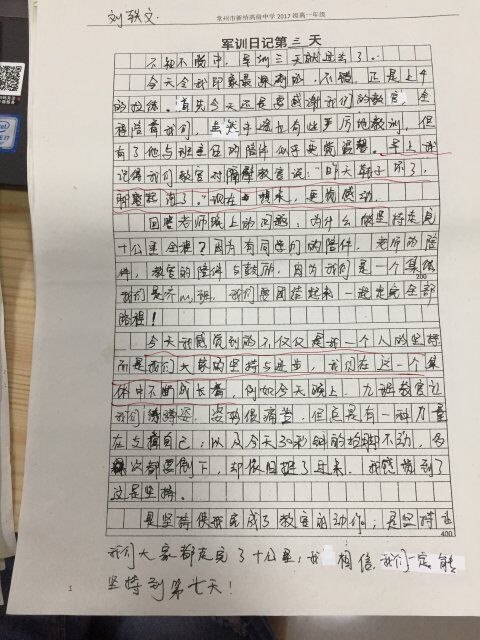 刘轶文
常州市新桥高级中学2017级高一年级
军训日记第三天
不知不觉中，军训三天就过去了。
今天令我印象最深刻的，不错，正是上午
的拉练。首先今天还是要感谢我们的教官，全
程陪着我们，虽然半途也有些严厉的教训，但
有了他与班主任的陪伴似乎更觉温馨。早上试
说得我们教官对隔壁教官说："昨天鞋子湿了，
脚磨起泡了。"现在想来，更觉感动。
回答老师晚上的问题，为什么能坚持走完
十公里全程？因为有同学们的陪伴，老师的陪
伴，教官的陪伴与鼓励，因为我们是一个集体
200
我们是济 班，我们要团结起来，一起走完全部
路程！
今天我感觉到的不仅仅是我一个人的坚持
而是我们大家的坚持与进步，我们在这一个集
体中不断成长着，例如今天晚上，九班教官让
我们蹲姿，姿势很痛苦，但总是有一种力量
在支撑自己；以及今天30秒钟的抬脚不动，多
次都要倒下，却依旧挺了过来。我感觉到了
这是坚持。
是坚持使我完成了教官的动作；是坚持让
400
我们大家都走完了十公里；我相信，我们一定能
坚持到第七天！
1